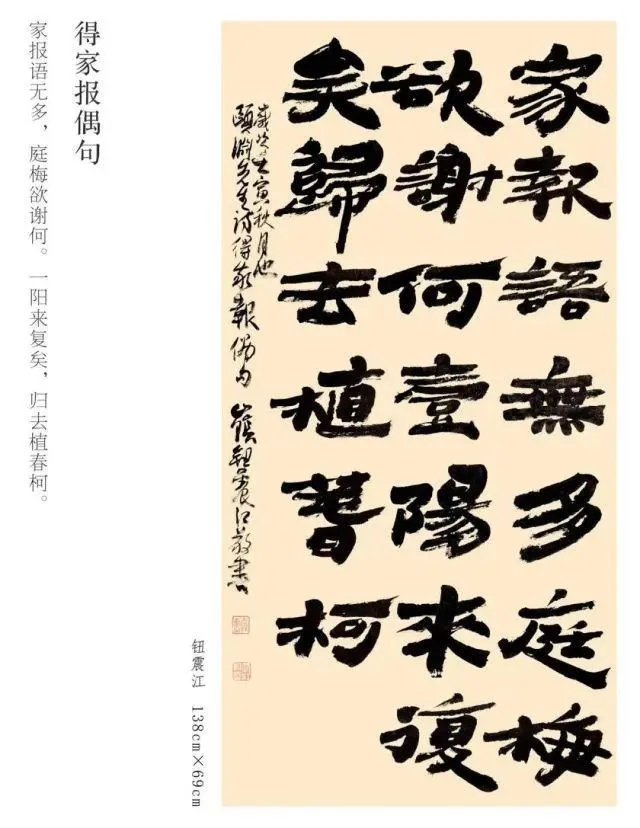 得家报偶句
家报语无多，庭梅欲谢何。一阳来复矣，归去植春柯。
家報語無多庭梅
欲謝何壹陽來復
矣歸去植萅柯
歲次壬寅秋月也
頤淵先生詩得家報偶句 鈕震江敬書
钮震江 138cm×69cm